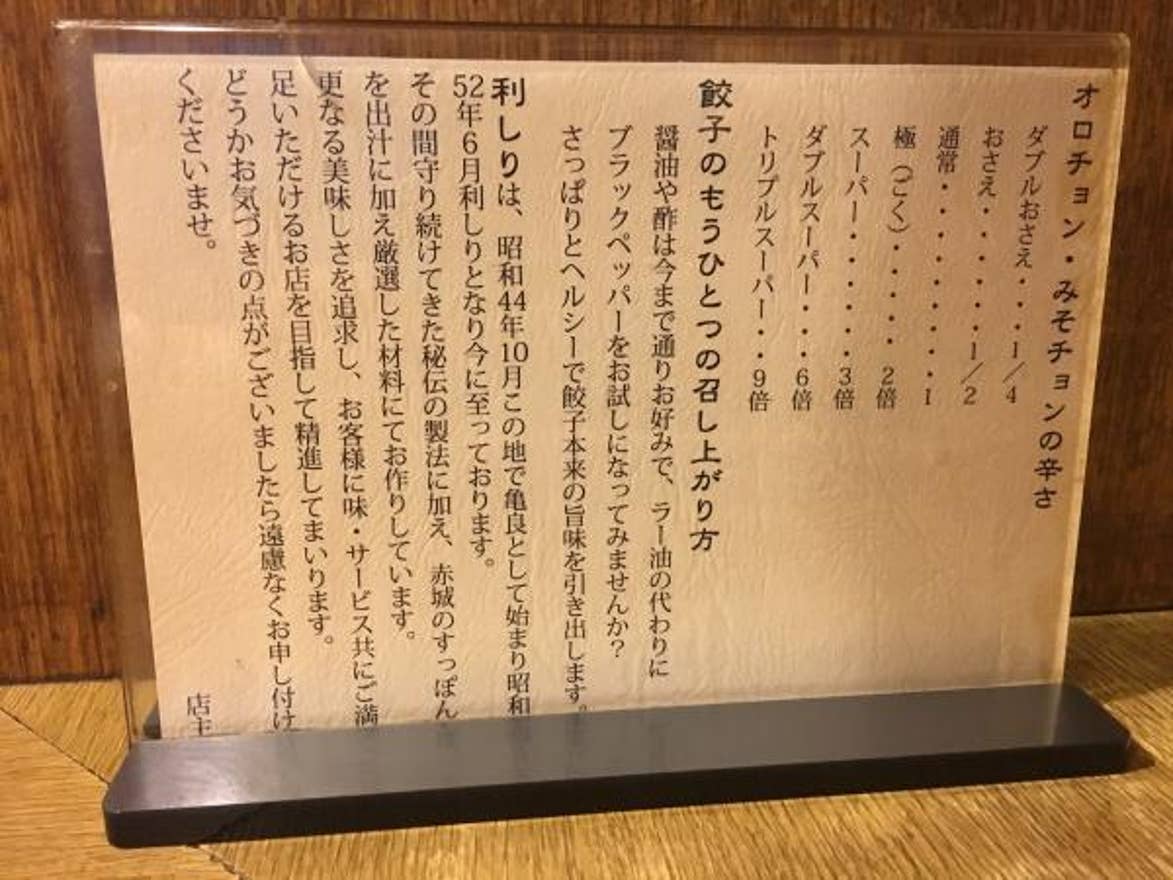 オロチョン・みそチョンの辛さ
ダブルおさえ・・・1／4
おさえ・・・・・・1／2
通常・・・・・・・・1
極（ごく）・・・・・2倍
スーパー・・・・・・3倍
ダブルスーパー・・・6倍
トリプルスーパー・・9倍
餃子のもうひとつの召し上がり方
醤油や酢は今まで通りお好みで、ラー油の代わりに
ブラックペッパーをお試しになってみませんか？
さっぱりとヘルシーで餃子本来の旨味を引き出します。
利しりは、昭和44年10月この地で亀良として始まり昭和
52年6月利しりとなり今に至っております。
その間守り続けてきた秘伝の製法に加え、赤城のすっぽん
を出汁に加え厳選した材料にてお作りしています。
更なる美味しさを追求し、お客様に味・サービス共にご満
足いただけるお店を目指して精進してまいります。
どうかお気づきの点がございましたら遠慮なくお申し付け
くださいませ。
店主